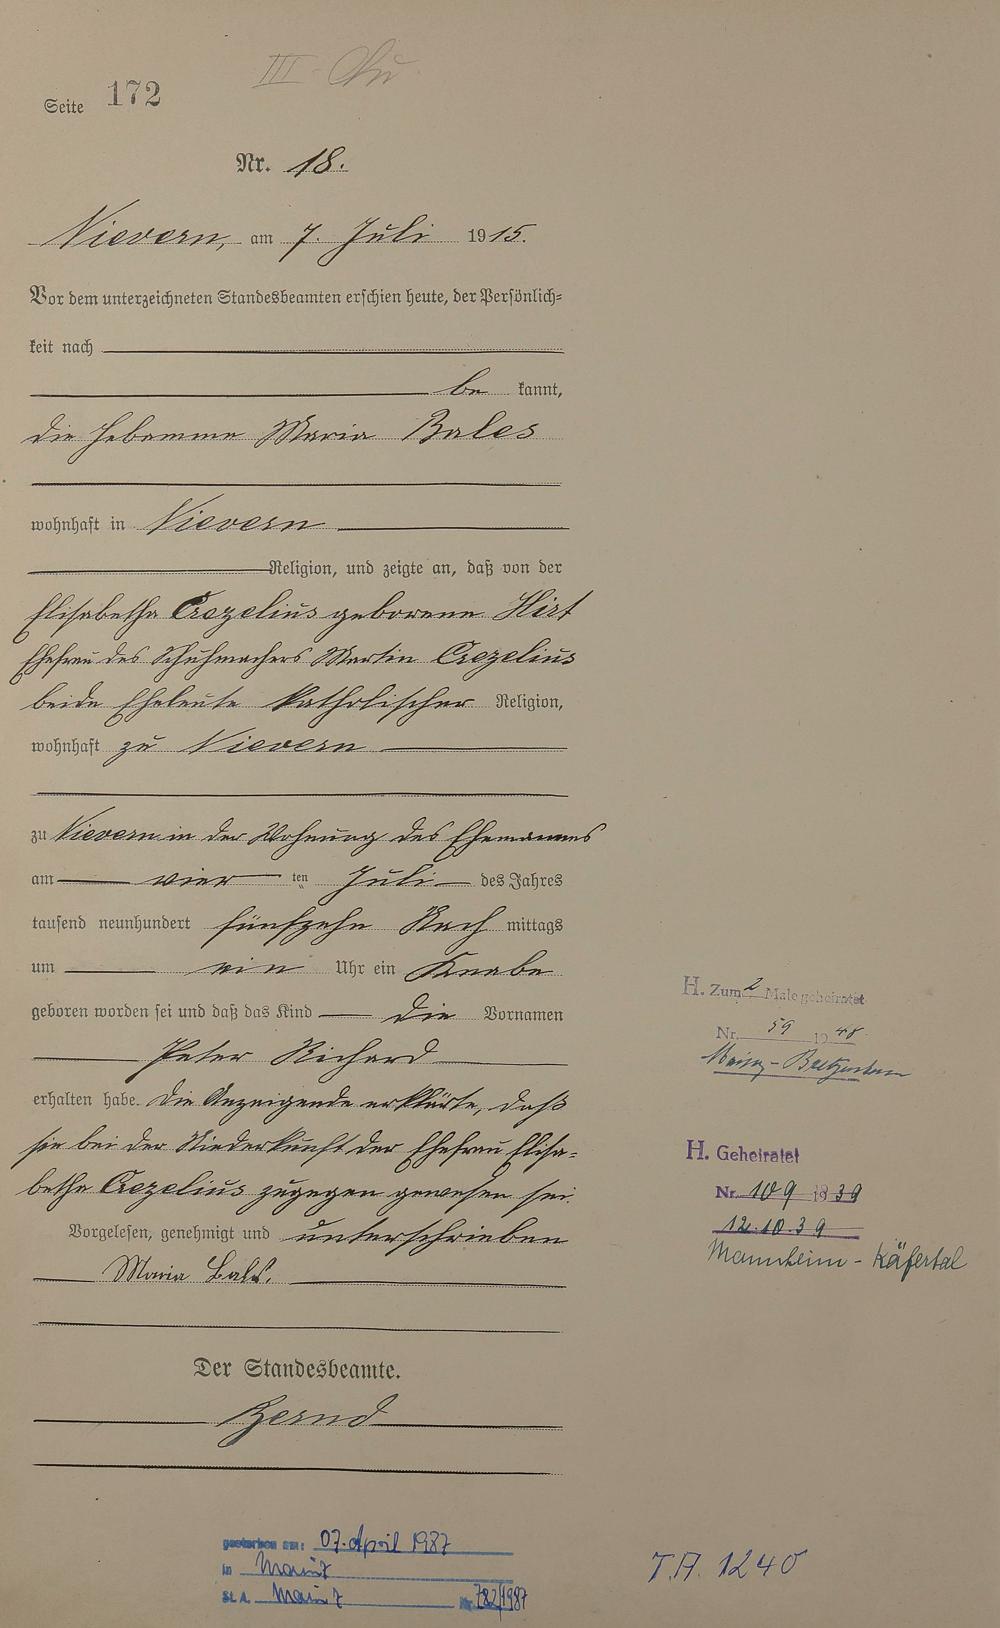 III
Seite 172
Nr. 18.
Nievern, am 7. Juli 1915.
Vor dem unterzeichneten Standesbeamten erschien heute, der Persönlich-
keit nach
be kannt,
die Hebamme Maria Bales
wohnhaft in Nievern
Religion, und zeigte an, daß von der
Elisabetha Crezelius geborene Hirt
Ehefrau des Schuhmachers Martin Crezelius
beide Eheleute katholischer Religion,
wohnhaft zu Nievern
zu Nievern in der Wohnung des Ehemannes
am vier ten Juli des Jahres
tausend neunhundert fünfzehn Nach mittags
um ein Uhr ein Knabe
geboren worden sei und daß das Kind die Vornamen
Peter Richard
erhalten habe. Die Anzeigende erklärte, daß
sie bei der Niederkunft der Ehefrau Elisa-
betha Crezelius zugegen gewesen sei.
Vorgelesen, genehmigt und unterschrieben
Maria Bales.
Der Standesbeamte.
Bernd
H. Zum 2 Male geheiratet
Nr. 59 1948
Mainz-Bretzenheim
H. Geheiratet
Nr. 109 1939
12.10.39
Mannheim - Käfertal
gestorben am: 07. April 1987
in Mainz
St. A. Mainz Nr. 782/1987
T.A. 1240